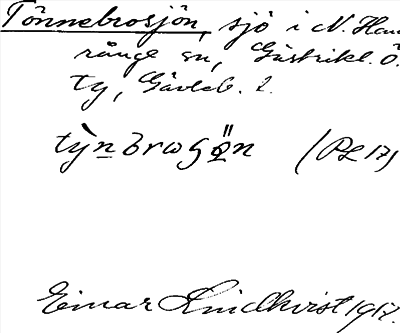 Tönnebrosjön, sjö i N. Ham
rånge sn, Gästrikl. Ö.
ty, Gävleb. l.
(PL 17)
Einar Lindkvist 1917.